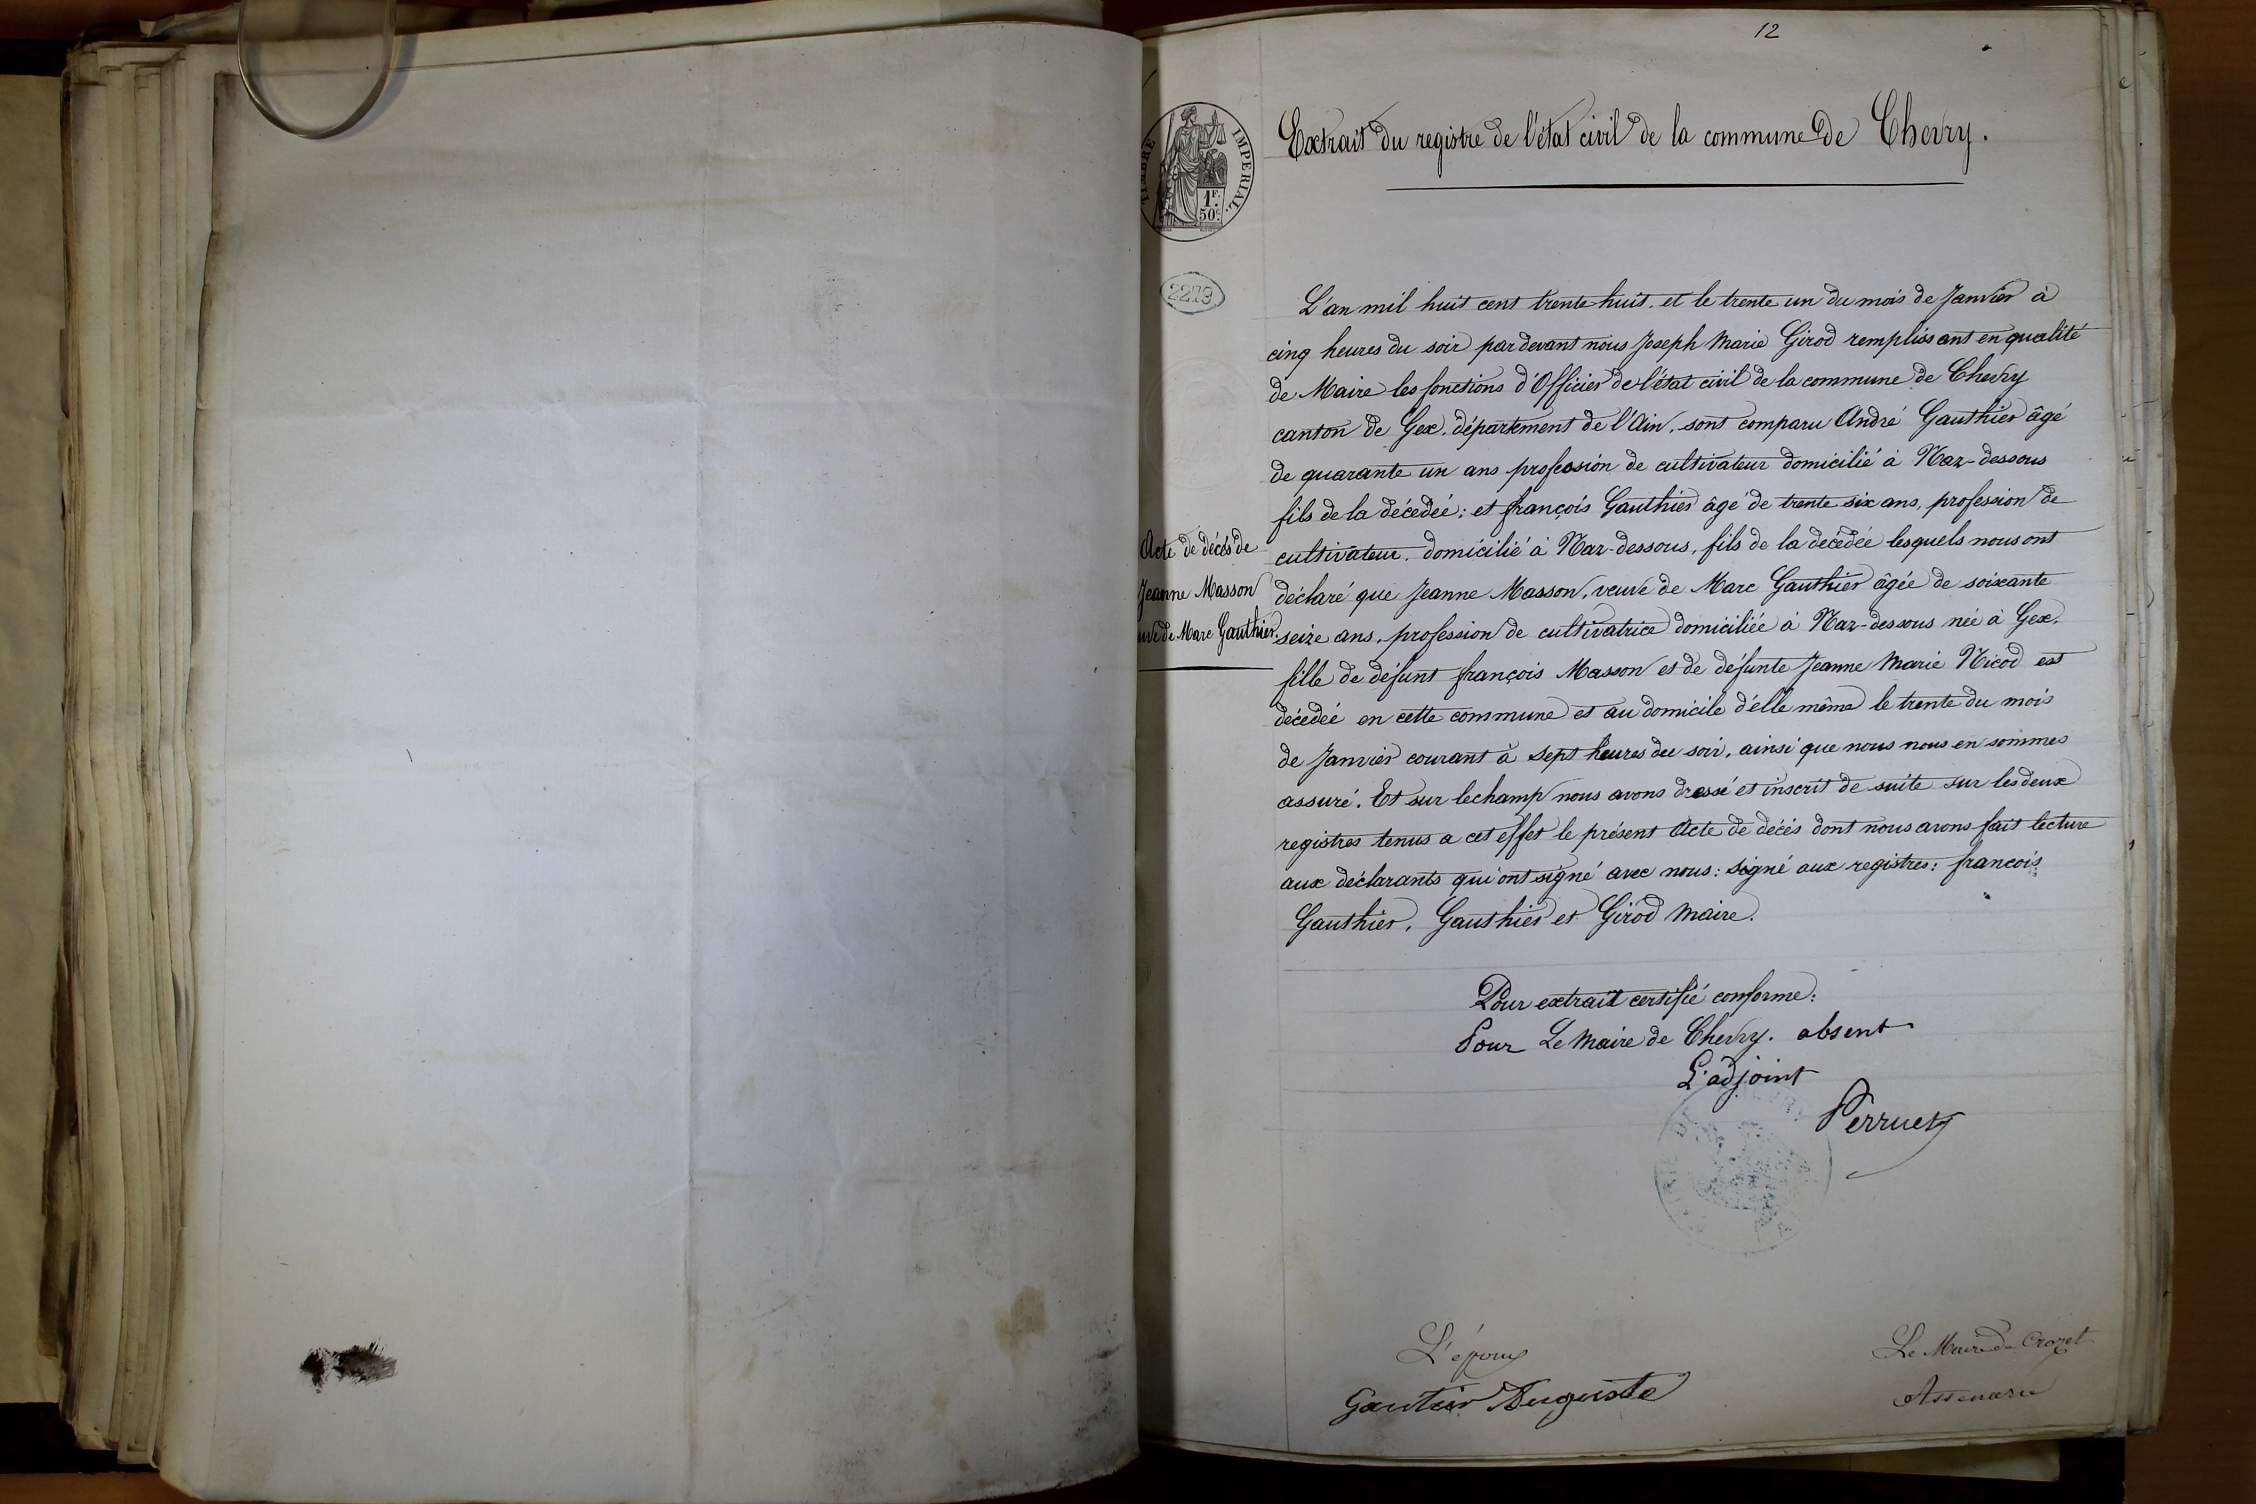 12
Extrait du registre de l'état civil de la commune de Chevry.
TIMBRE IMPERIAL.
1F.
50c.
2273
L'an mil huit cent trente huit, et le trente un du mois de Janvier à
cinq heures du soir par devant nous Joseph Marie Girod remplissant en qualité
de Maire les fonctions d'Officier de l'état civil de la commune de Chevry
canton de Gex, département de l'Ain, sont comparu André Gauthier âgé
de quarante un ans profession de cultivateur domicilié à Naz-dessous
fils de la décédée; et françois Gauthier âgé de trente six ans, profession de
cultivateur, domicilié à Naz-dessous, fils de la décédée lesquels nous ont
déclaré que Jeanne Masson, veuve de Marc Gauthier âgée de soixante
seize ans, profession de cultivatrice domiciliée à Naz-dessous née à Gex,
fille de défunt françois Masson et de défunte Jeanne Marie Nicod est
décédée en cette commune et au domicile d'elle même le trente du mois
de Janvier courant à sept heures du soir, ainsi que nous nous en sommes
assuré. Et sur lechamp nous avons dressé et inscrit de suite sur les deux
registres tenus a cet effet le présent Acte de décès dont nous avons fait lecture
aux déclarants qui ont signé avec nous: signé aux registres: francois
Gauthier, Gauthier et Girod Maire.
Acte de décès de
Jeanne Masson
uve de Marc Gauthier.
Pour extrait certifié conforme:
Pour Le Maire de Chevry. absent
L'adjoint
Perruet
L'époux
Gautier Auguste
Le Maire de Crozet